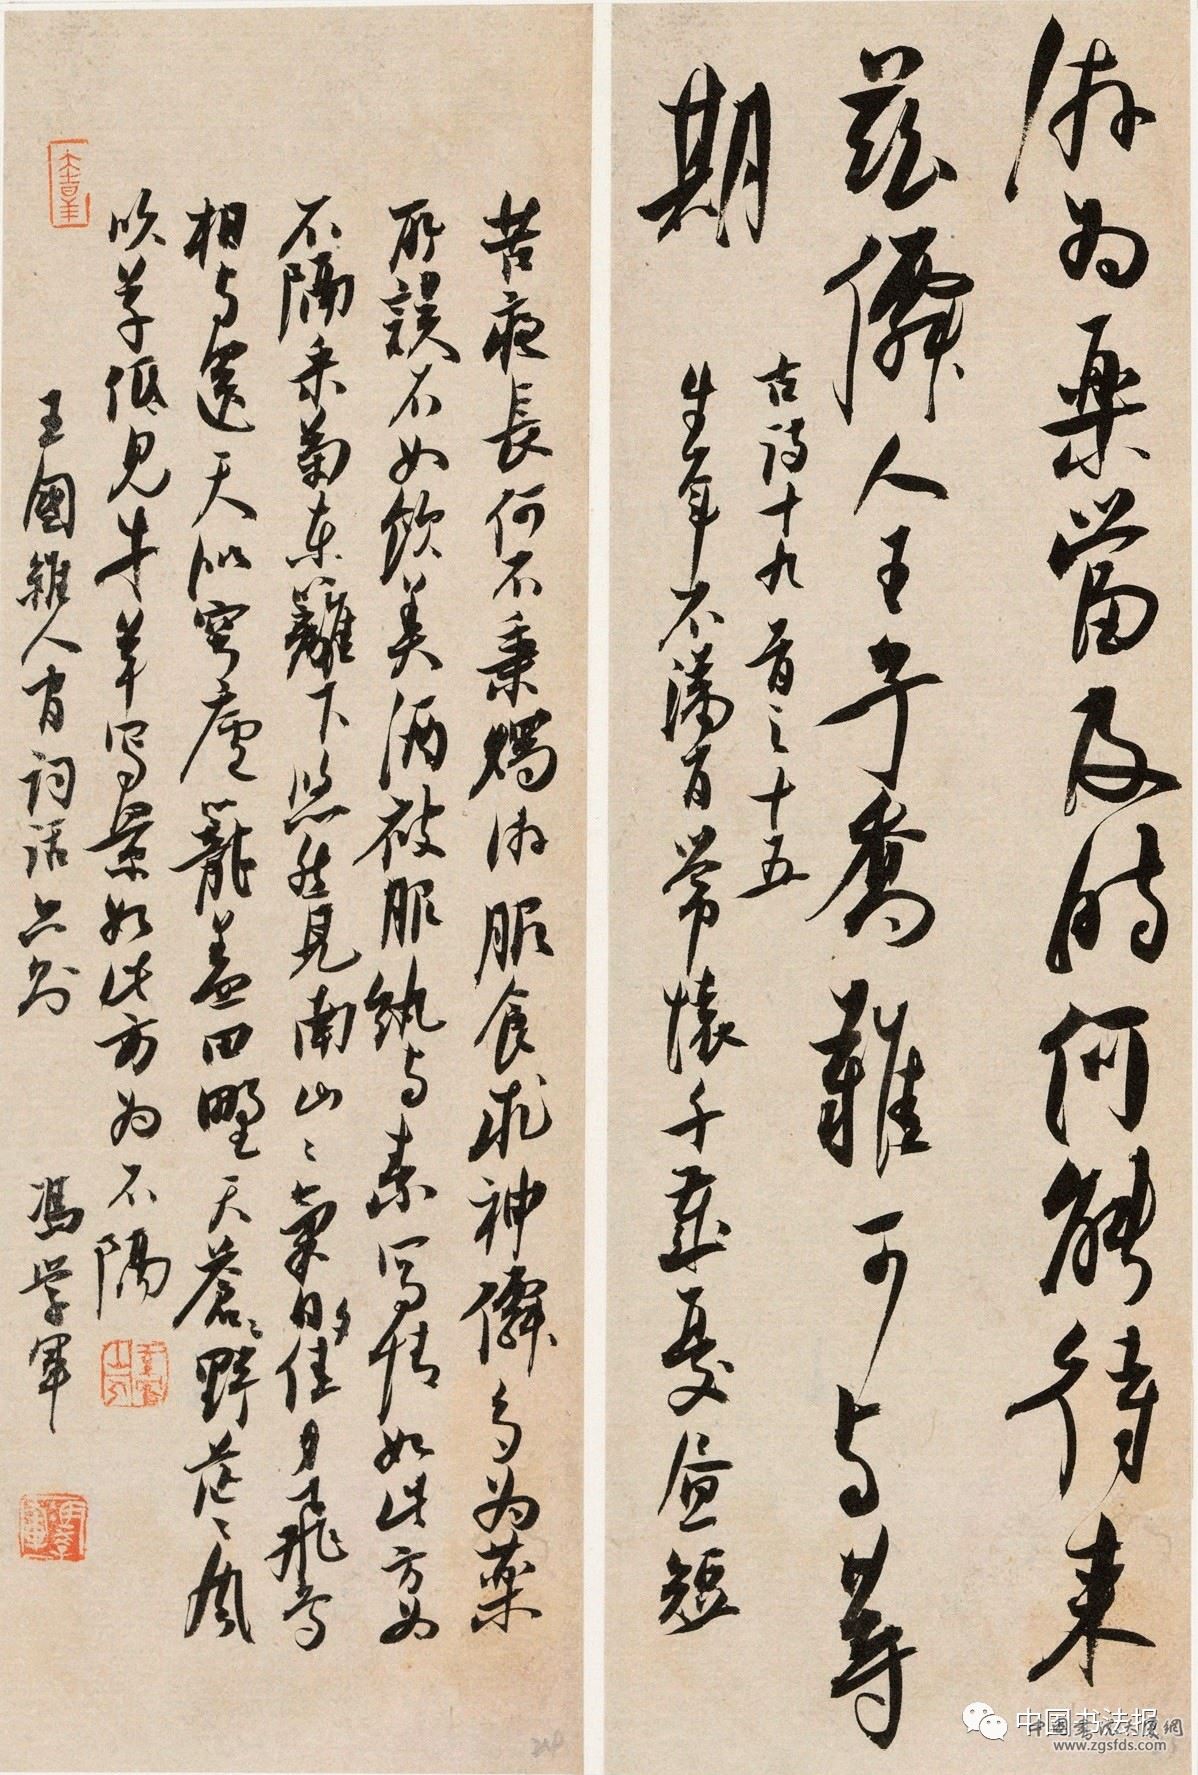 游为樂當及時何能待来
兹僊人王子喬難可与等
期
古詩十九首之十五
生年不滿百常懷千歲憂晝短
苦夜長何不秉燭游服食求神僊多为藥
所誤不如飲美酒被服紈与素寫情如此方为
不隔采菊東籬下悠然見南山〻氣日夕佳飛鳥
相与還天似穹廬籠蓋四野天蒼〻野茫〻風
吹草低見牛羊寫景如此方为不隔
王國維人間詞話
馮學軍
中国书法报
中國書法大廈網
www.zgsfds.com